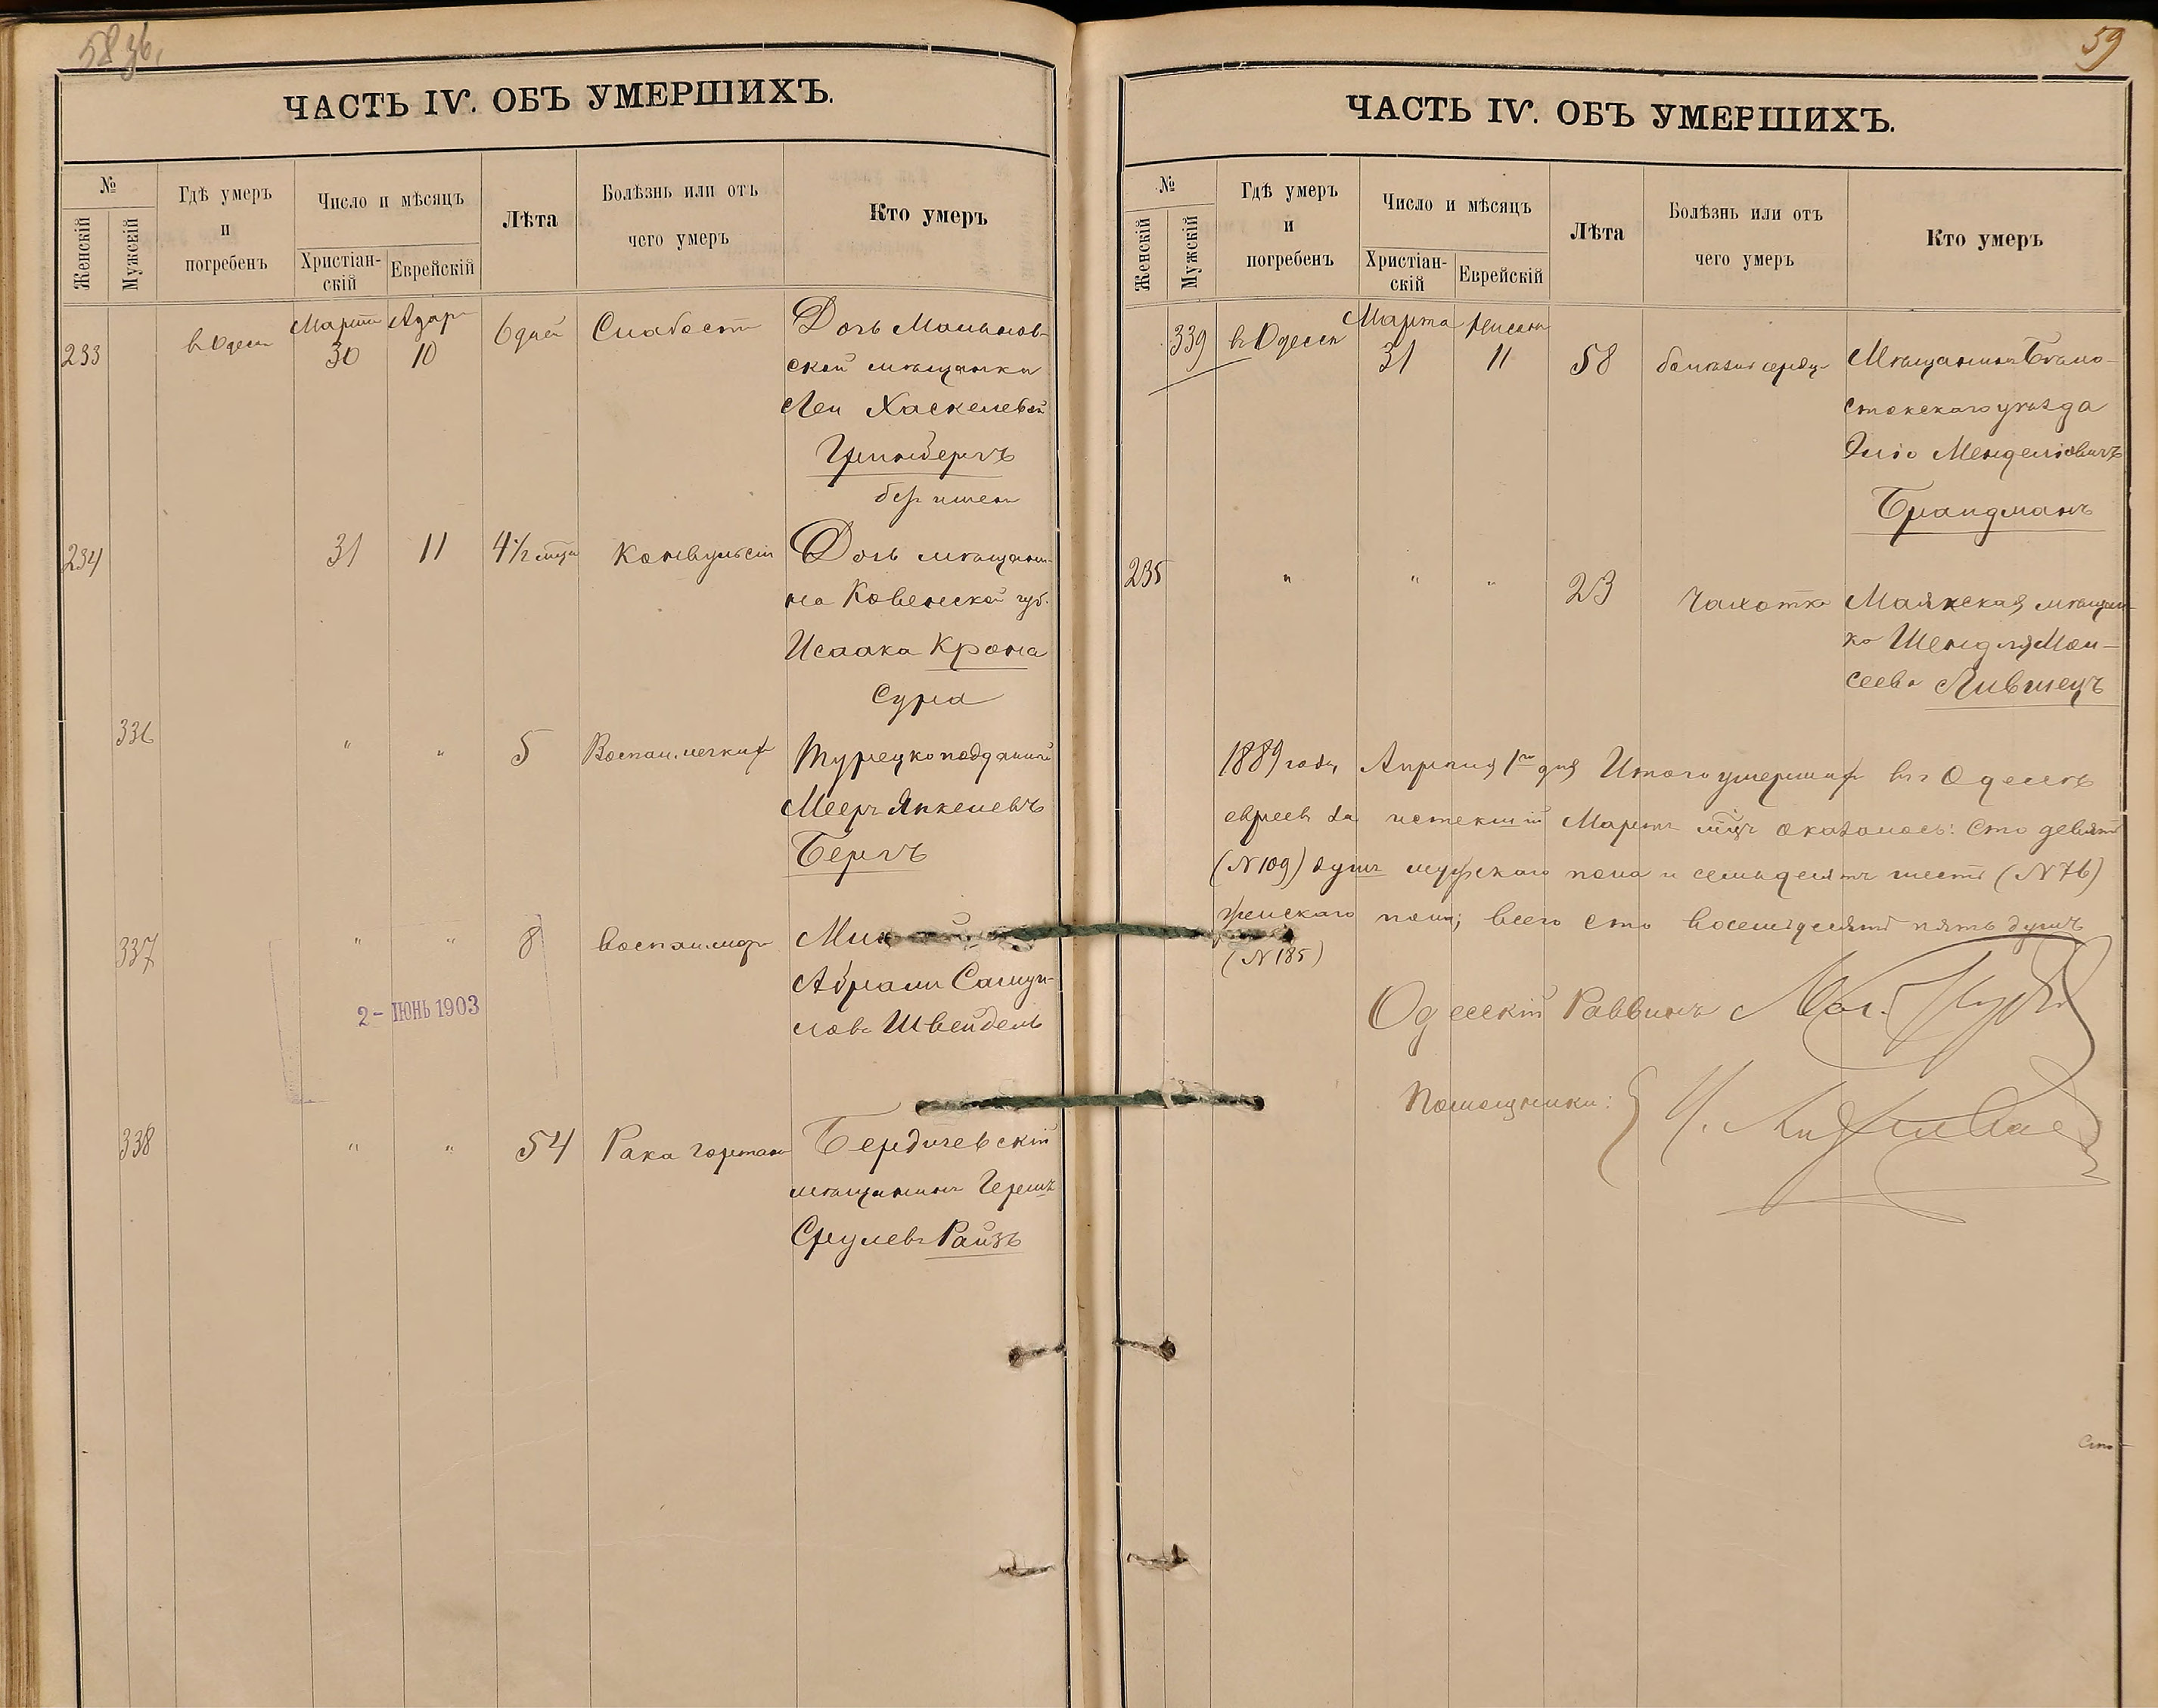 58 зв.
ЧАСТЬ IV. ОБЪ УМЕРШИХЪ.
№
Женскій
Мужскій
Гдѣ умеръ
и
погребенъ
Число и мѣсяцъ
Христіан-
скій
Еврейскій
Лѣта
Болѣзнь или отъ
чего умеръ
Кто умеръ
233
в Одессѣ
Марта
30
Адар
10
6 дней
Слабость
Дочь
ской мѣщанки
Леи Хаскелевой
Гринбергъ
без имени
234
31
11
4 1/2 мѣц
Конвульсіи
Дочь мѣщани-
на Ковенской губ.
Исаака Крона
Сура
336
"
"
5
Воспал. легких
Турецкоподданный
Меер Янкелевъ
Бергъ
337
"
"
8
воспал.
Абрам Самуи-
лов Швейдель
2 - ІЮНЬ 1903
338
"
"
54
Рака гортани
Бердичевскій
мѣщанинъ Гершъ
Срулев Райзъ
59
ЧАСТЬ IV. ОБЪ УМЕРШИХЪ.
№
Женскій
Мужскій
Гдѣ умеръ
и
погребенъ
Число и мѣсяцъ
Христіан-
скій
Еврейскій
Лѣта
Болѣзнь или отъ
чего умеръ
Кто умеръ
339
в Одессѣ
Марта
31
Нисана
11
58
болѣзни сердц
Мѣщанинъ Бѣло-
стокскаго уѣзда
Эліо Менделіовичъ
Брандманъ
235
"
"
"
23
Чахотка
Маякская мѣщан-
ка Шендля Мои-
сеева Лившецъ
1889 года Апрѣля 1го дня Итого умерших въ Одессѣ
евреев за истекшій Мартъ мѣц оказалось: Сто девять
(№ 109) душъ мужскаго пола и семьдесятъ шесть (№ 76)
женскаго пола; всего сто восемьдесятъ пять душъ
(№ 185)
Одесскій Раввинъ
Помощники: